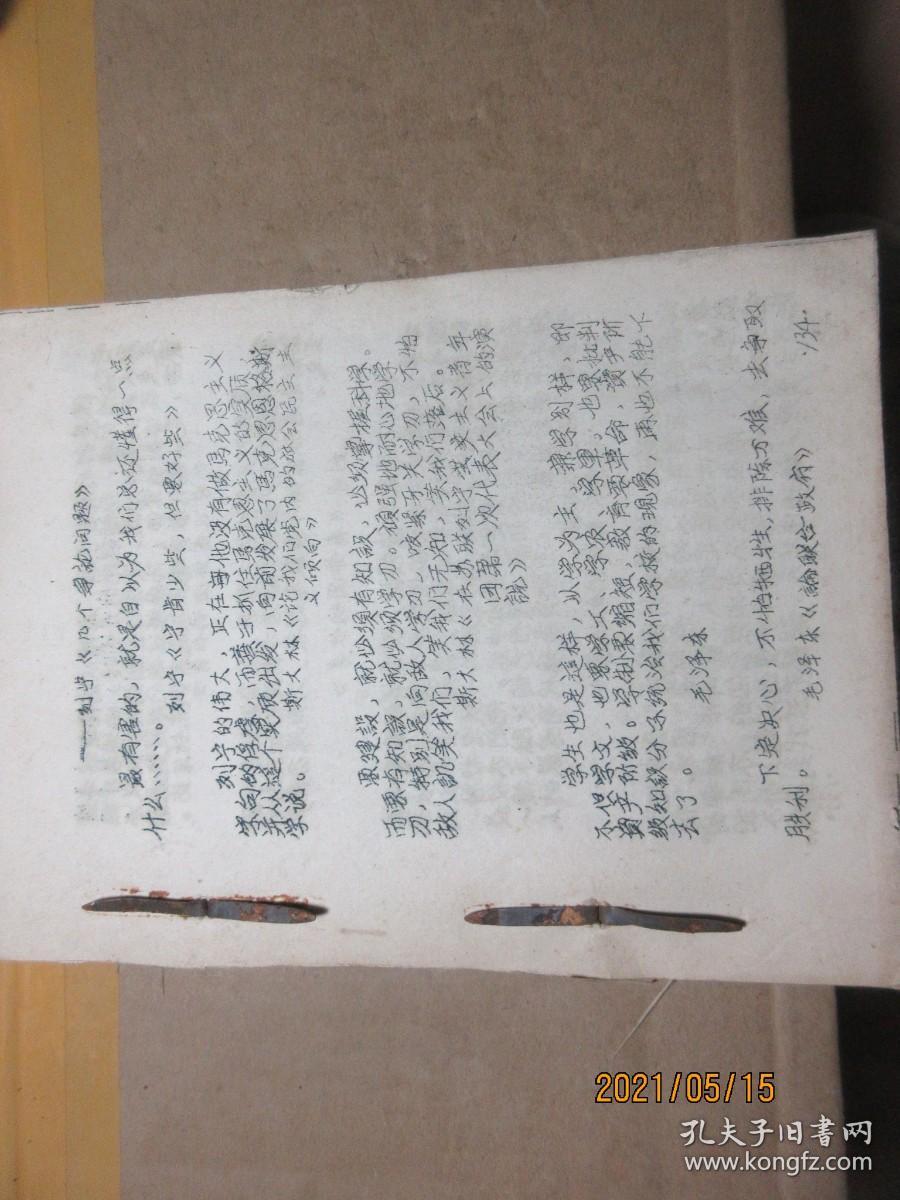 ——列宁《几个争论问题》
最有害的，就是自以为我们总还懂得一点
什么……。
列宁《宁肯少些，但要好些》
列宁的伟大，正在每他没有做马克思主义
字句的俘虏，而善于抓住马克思主义的实质，
并从这个实质出发，向前发展了马克思恩格斯
学说。
斯大林《论我们党内的社会民主主
义倾向》
要建設，就必须有知識，必须掌握科学。
而要有知識，就必须学习。顽强地耐心地学
习，特别是向敌人学习，咬紧牙关学习，不怕
敌人讥笑我们，笑我们无知，笑我们落后。
斯大林《在苏联列宁共产主义青年
团第一次代表大会上的演
說》
学生也是这样，以学为主，兼学别样，即
不但学文，也要学工、学农、学軍，也要批判
資产阶级。学制要缩短，教育要革命，資产阶
级知識分子统治我们学校的现象，再也不能下
去了。
毛泽东
下定决心，不怕牺牲，排除万难，去争取
胜利。
毛泽东《論联合政府》
·134·
2021/05/15
孔夫子旧书网
www.kongfz.com